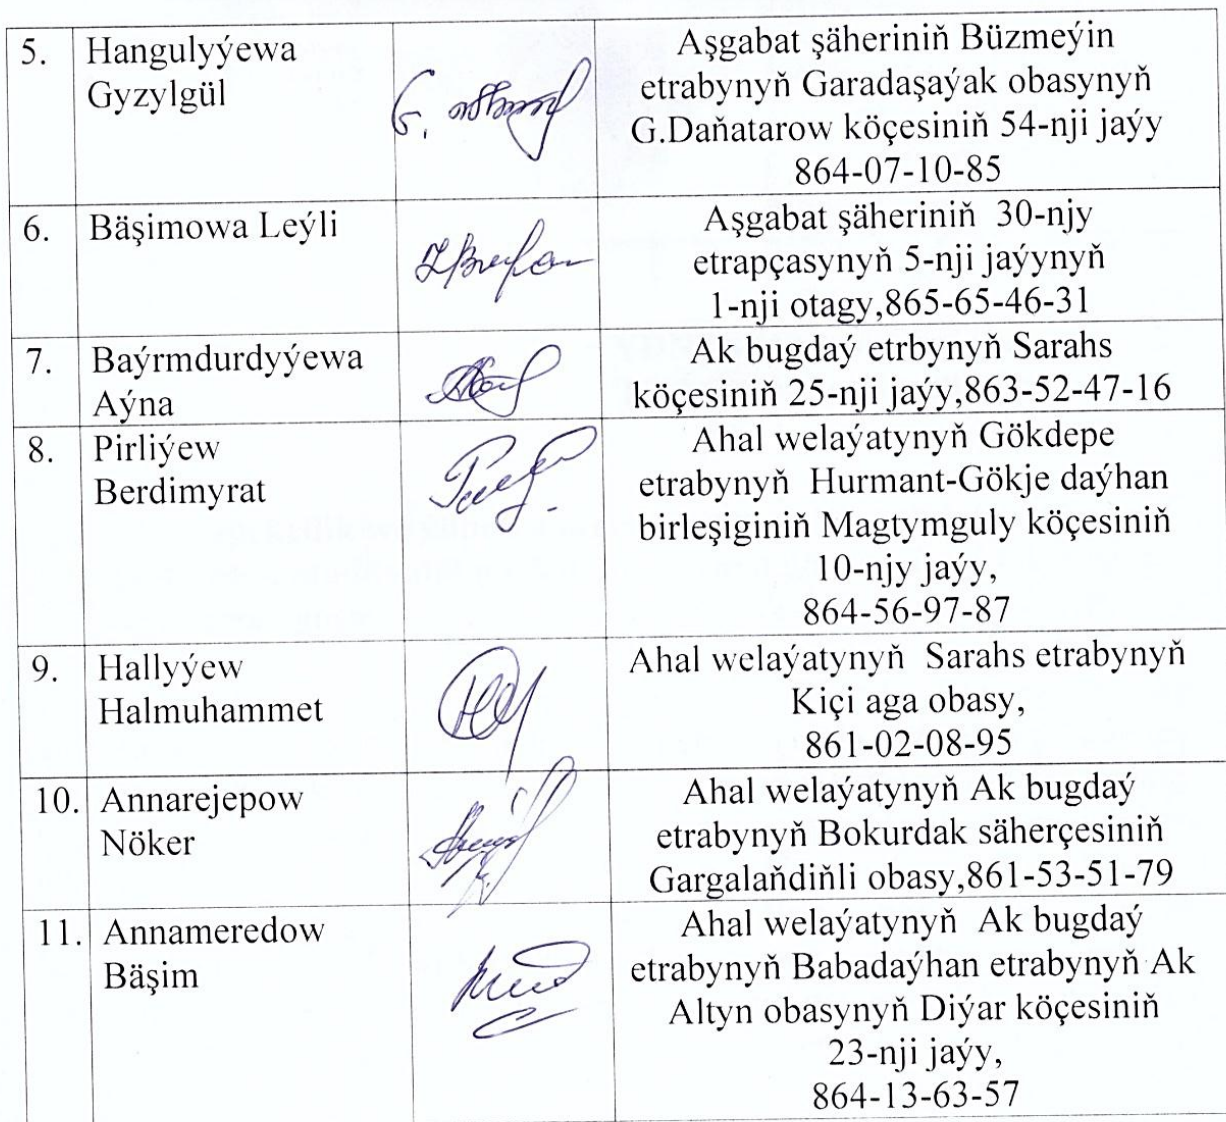 5. Hangulyýewa
Gyzylgül
Aşgabat şäheriniň Büzmeýin
etrabynyň Garadaşaýak obasynyň
G.Daňatarow köçesiniň 54-nji jaýy
864-07-10-85
6. Bäşimowa Leýli
Aşgabat şäheriniň 30-njy
etrapçasynyň 5-nji jaýynyň
1-nji otagy,865-65-46-31
7. Baýrmdurdyýewa
Aýna
Ak bugdaý etrbynyň Sarahs
köçesiniň 25-nji jaýy,863-52-47-16
8. Pirliýew
Berdimyrat
Ahal welaýatynyň Gökdepe
etrabynyň Hurmant-Gökje daýhan
birleşiginiň Magtymguly köçesiniň
10-njy jaýy,
864-56-97-87
9. Hallyýew
Halmuhammet
Ahal welaýatynyň Sarahs etrabynyň
Kiçi aga obasy,
861-02-08-95
10. Annarejepow
Nöker
Ahal welaýatynyň Ak bugdaý
etrabynyň Bokurdak säherçesiniň
Gargalaňdiňli obasy,861-53-51-79
11. Annameredow
Bäşim
Ahal welaýatynyň Ak bugdaý
etrabynyň Babadaýhan etrabynyň Ak
Altyn obasynyň Diýar köçesiniň
23-nji jaýy,
864-13-63-57